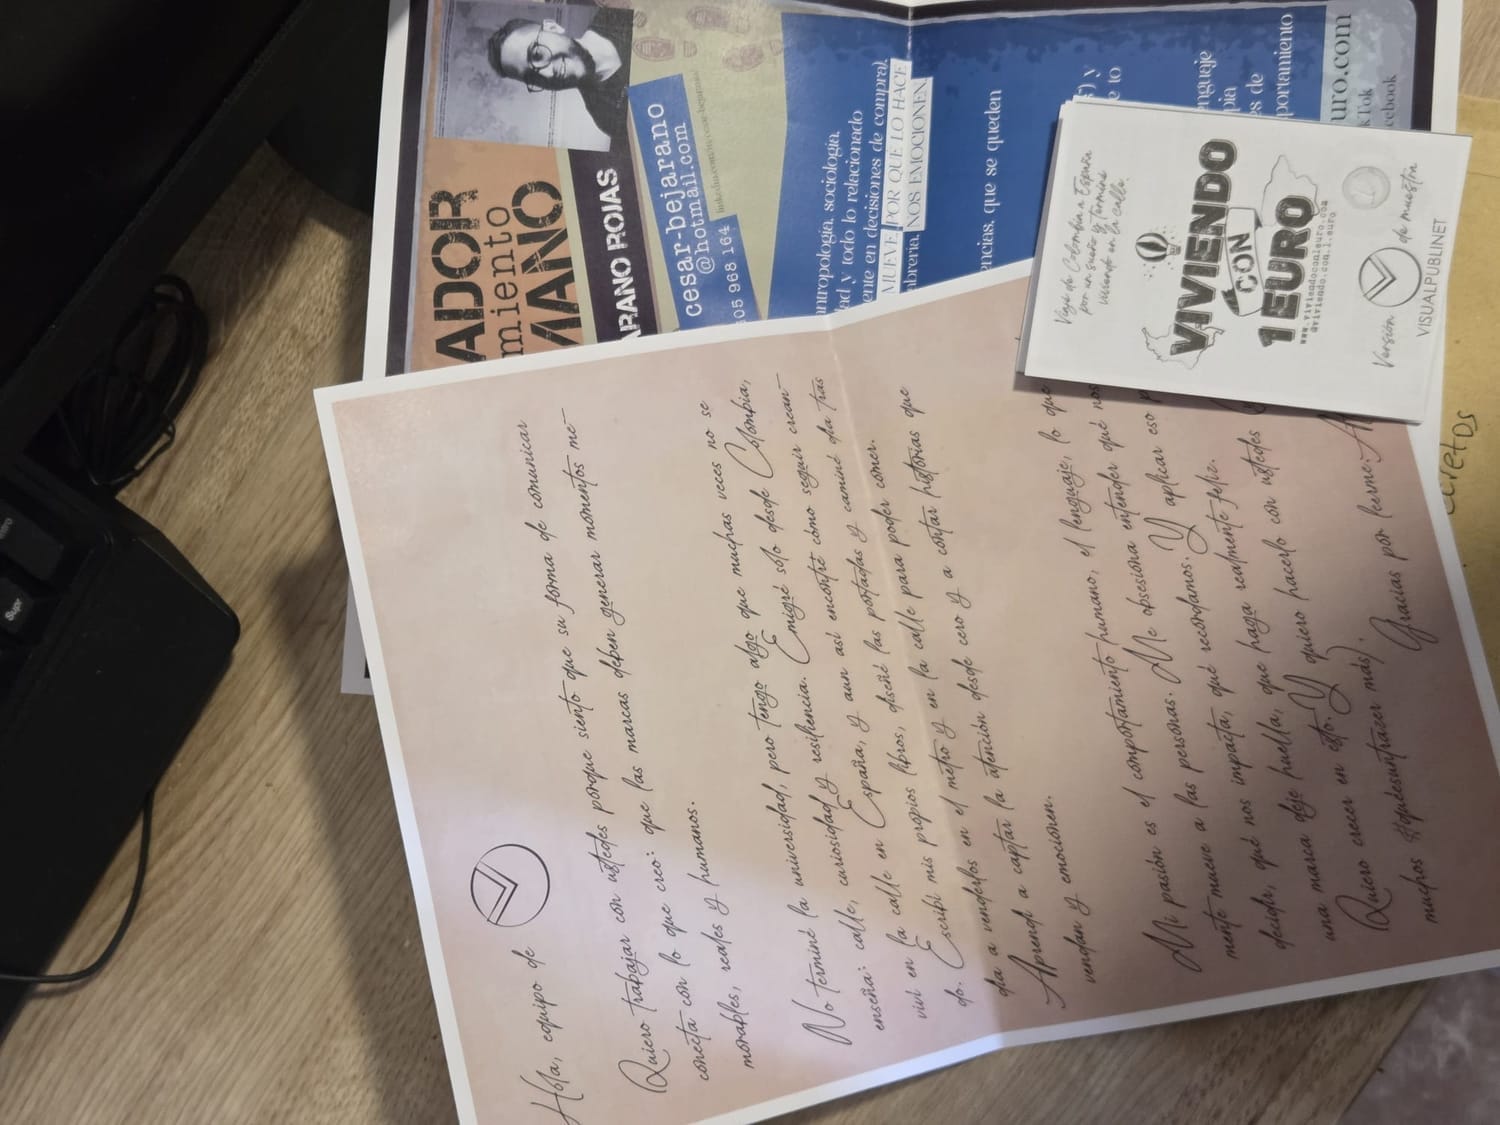 Hola, equipo de
Quiero trabajar con ustedes porque siento que su forma de comunicar
conecta con lo que creo: que las marcas deben generar momentos me-
morables, reales y humanos.
No terminé la universidad, pero tengo algo que muchas veces no se
enseña: calle, curiosidad y resiliencia. Emigré solo desde Colombia,
viví en la calle en España, y aun así encontré cómo seguir crean-
do. Escribí mis propios libros, diseñé las portadas y caminé día tras
día a venderlos en el metro y en la calle para poder comer.
Aprendí a captar la atención desde cero y a contar historias que
vendan y emocionen.
Mi pasión es el comportamiento humano, el lenguaje, lo que
mueve a las personas. Me obsesiona entender qué nos
decidir, qué nos impacta, qué recordamos. Y aplicar eso
una marca deje huella, que haga realmente feliz.
Quiero crecer en esto. Y quiero hacerlo con ustedes
muchos #quédesuntrazer más).
Gracias por leerme.
ADOR
miento
MANO
ARANO ROJAS
cesar-bejarano
@hotmail.com
605 968 164
antropología, sociología,
dad y todo lo relacionado
ente en decisiones de compra),
MUEVE, POR QUÉ LO HACE
NOS EMOCIONEN
encias, que se queden
y
e to
nguaje
es de
portamiento
uro.com
kTok
cebook
Viajé de Colombia a España
por un sueño y terminé
viviendo en la calle.
VIVIENDO
CON
1 EURO
www.viviendocon1euro.com
@viviendo.con.1.euro
Versión de muestra
VISUALPUBLINET
cretos
Supr